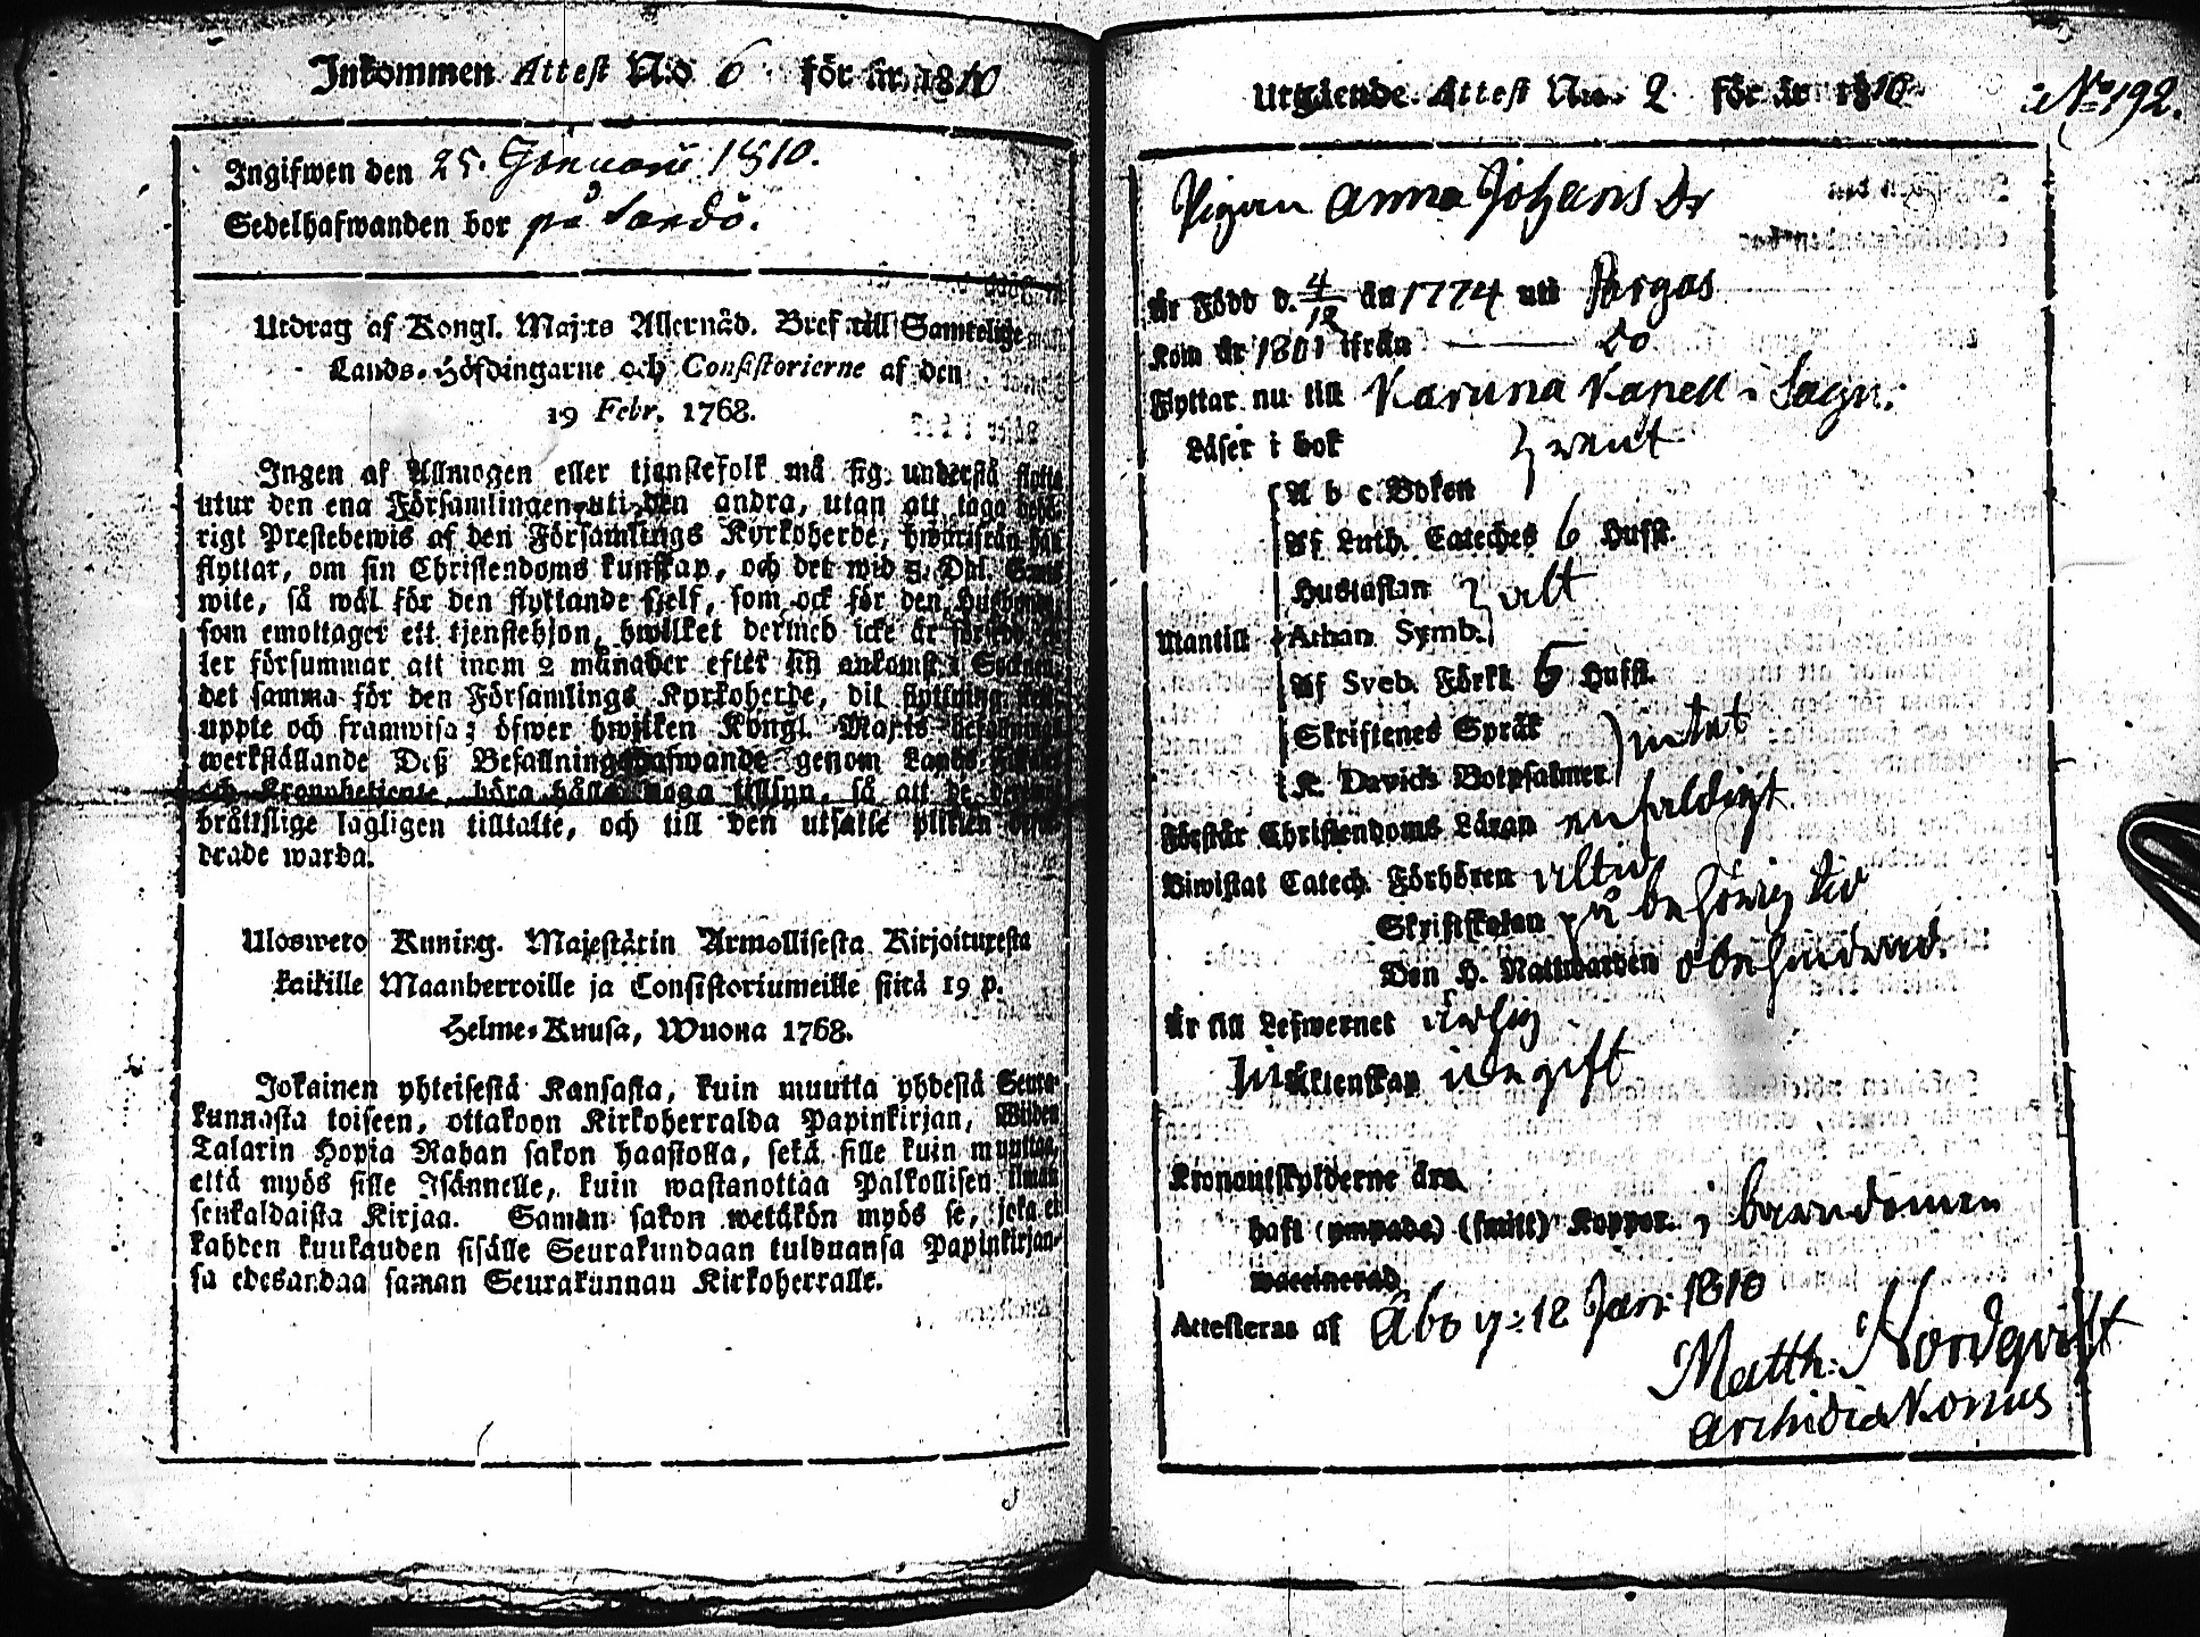 Inkommen Attest N:o 6 för år 1810
Ingifwen den 25. Januarii 1810.
Sedelhafwanden bor på Sandö.
Utdrag af Kongl. Maj:ts Allernåd. Bref till Samtelige
Lands-Höfdingarne och Consistorierne af den
19 Febr. 1768.
Ingen af Allmogen eller tjenstefolk må sig understå flytta
utur den ena Församlingen uti den andra, utan att taga behö-
rigt Prestebewis af den Församlings Kyrkoherde, hwarifrån han
flyttar, om sin Christendoms kunskap, och det wid 5 Dal. Smt
wite, så wäl för den flyttande sjelf, som ock för den Husbonde,
som emottager ett tjenstehjon, hwilket dermed icke är försedt, el-
ler försummar att inom 2 månader efter sin ankomst i Socknen,
det samma för den Församlings Kyrkoherde, dit flyttning sker,
uppte och framwisa; öfwer hwilken Kongl. Maj:ts befallnings
werkställande Deß Befallningshafwande genom Lands
och Kronobetjente, böra hålla noga tillsyn, så att de
bråttslige lagligen tilltalte, och till den utsatte plikten
drade warda.
Ulosweto Kuning. Majestätin Armollisesta Kirjoituxesta
kaikille Maanherroille ja Consistoriumeille siitä 19 p.
Helme-Kuusa, Wuona 1768.
Jokainen yhteisestä Kansasta, kuin muutta yhdestä Seura-
kunnasta toiseen, ottakoon Kirkoherralda Papinkirjan, Wiiden
Talarin Hopia Rahan sakon haastolla, sekä sille kuin muuttaa,
että myös sille Isännelle, kuin wastanottaa Palkollisen ilman
senkaldaista Kirjaa. Saman sakon wetäkön myös se, joka ei
kahden kuukauden sisälle Seurakundaan tulduansa Papinkirjaan-
sa edesandaa saman Seurakunnan Kirkoherralle.
Utgående Attest N:o 2 för år 1810
No 192.
Pigan Anna Johans Dr
Är Född d. 4/12 år 1774 uti Pargas
Kom år 1801 ifrån — Do
Flyttar nu till Karuna Kapell i Sagu:
Läser i bok
} rent
A b c Boken
Af Luth. Cateches 6 Hufst.
Hustaflan } alt
Utantill
Athan Symb.
Af Sveb. Förkl. 5 Hufst.
Skriftenes Språk
} intet
K. Davids Botpsalmer
Förstår Christendoms Läran enfaldigt
Biwistat Catech. Förhören altid
Skriftskolan på behörig tid
Den H. Nattwarden obehindrad.
Är till Lefwernet ärlig
Till Äktenskap ledig
Kronoutskylderne äro
haft (ympade) (smitt) Koppor. i barndomen
waccinerad
Attesteras af Åbo d: 12 Jan: 1810
Matth: Nordqvist
Archidiakonus